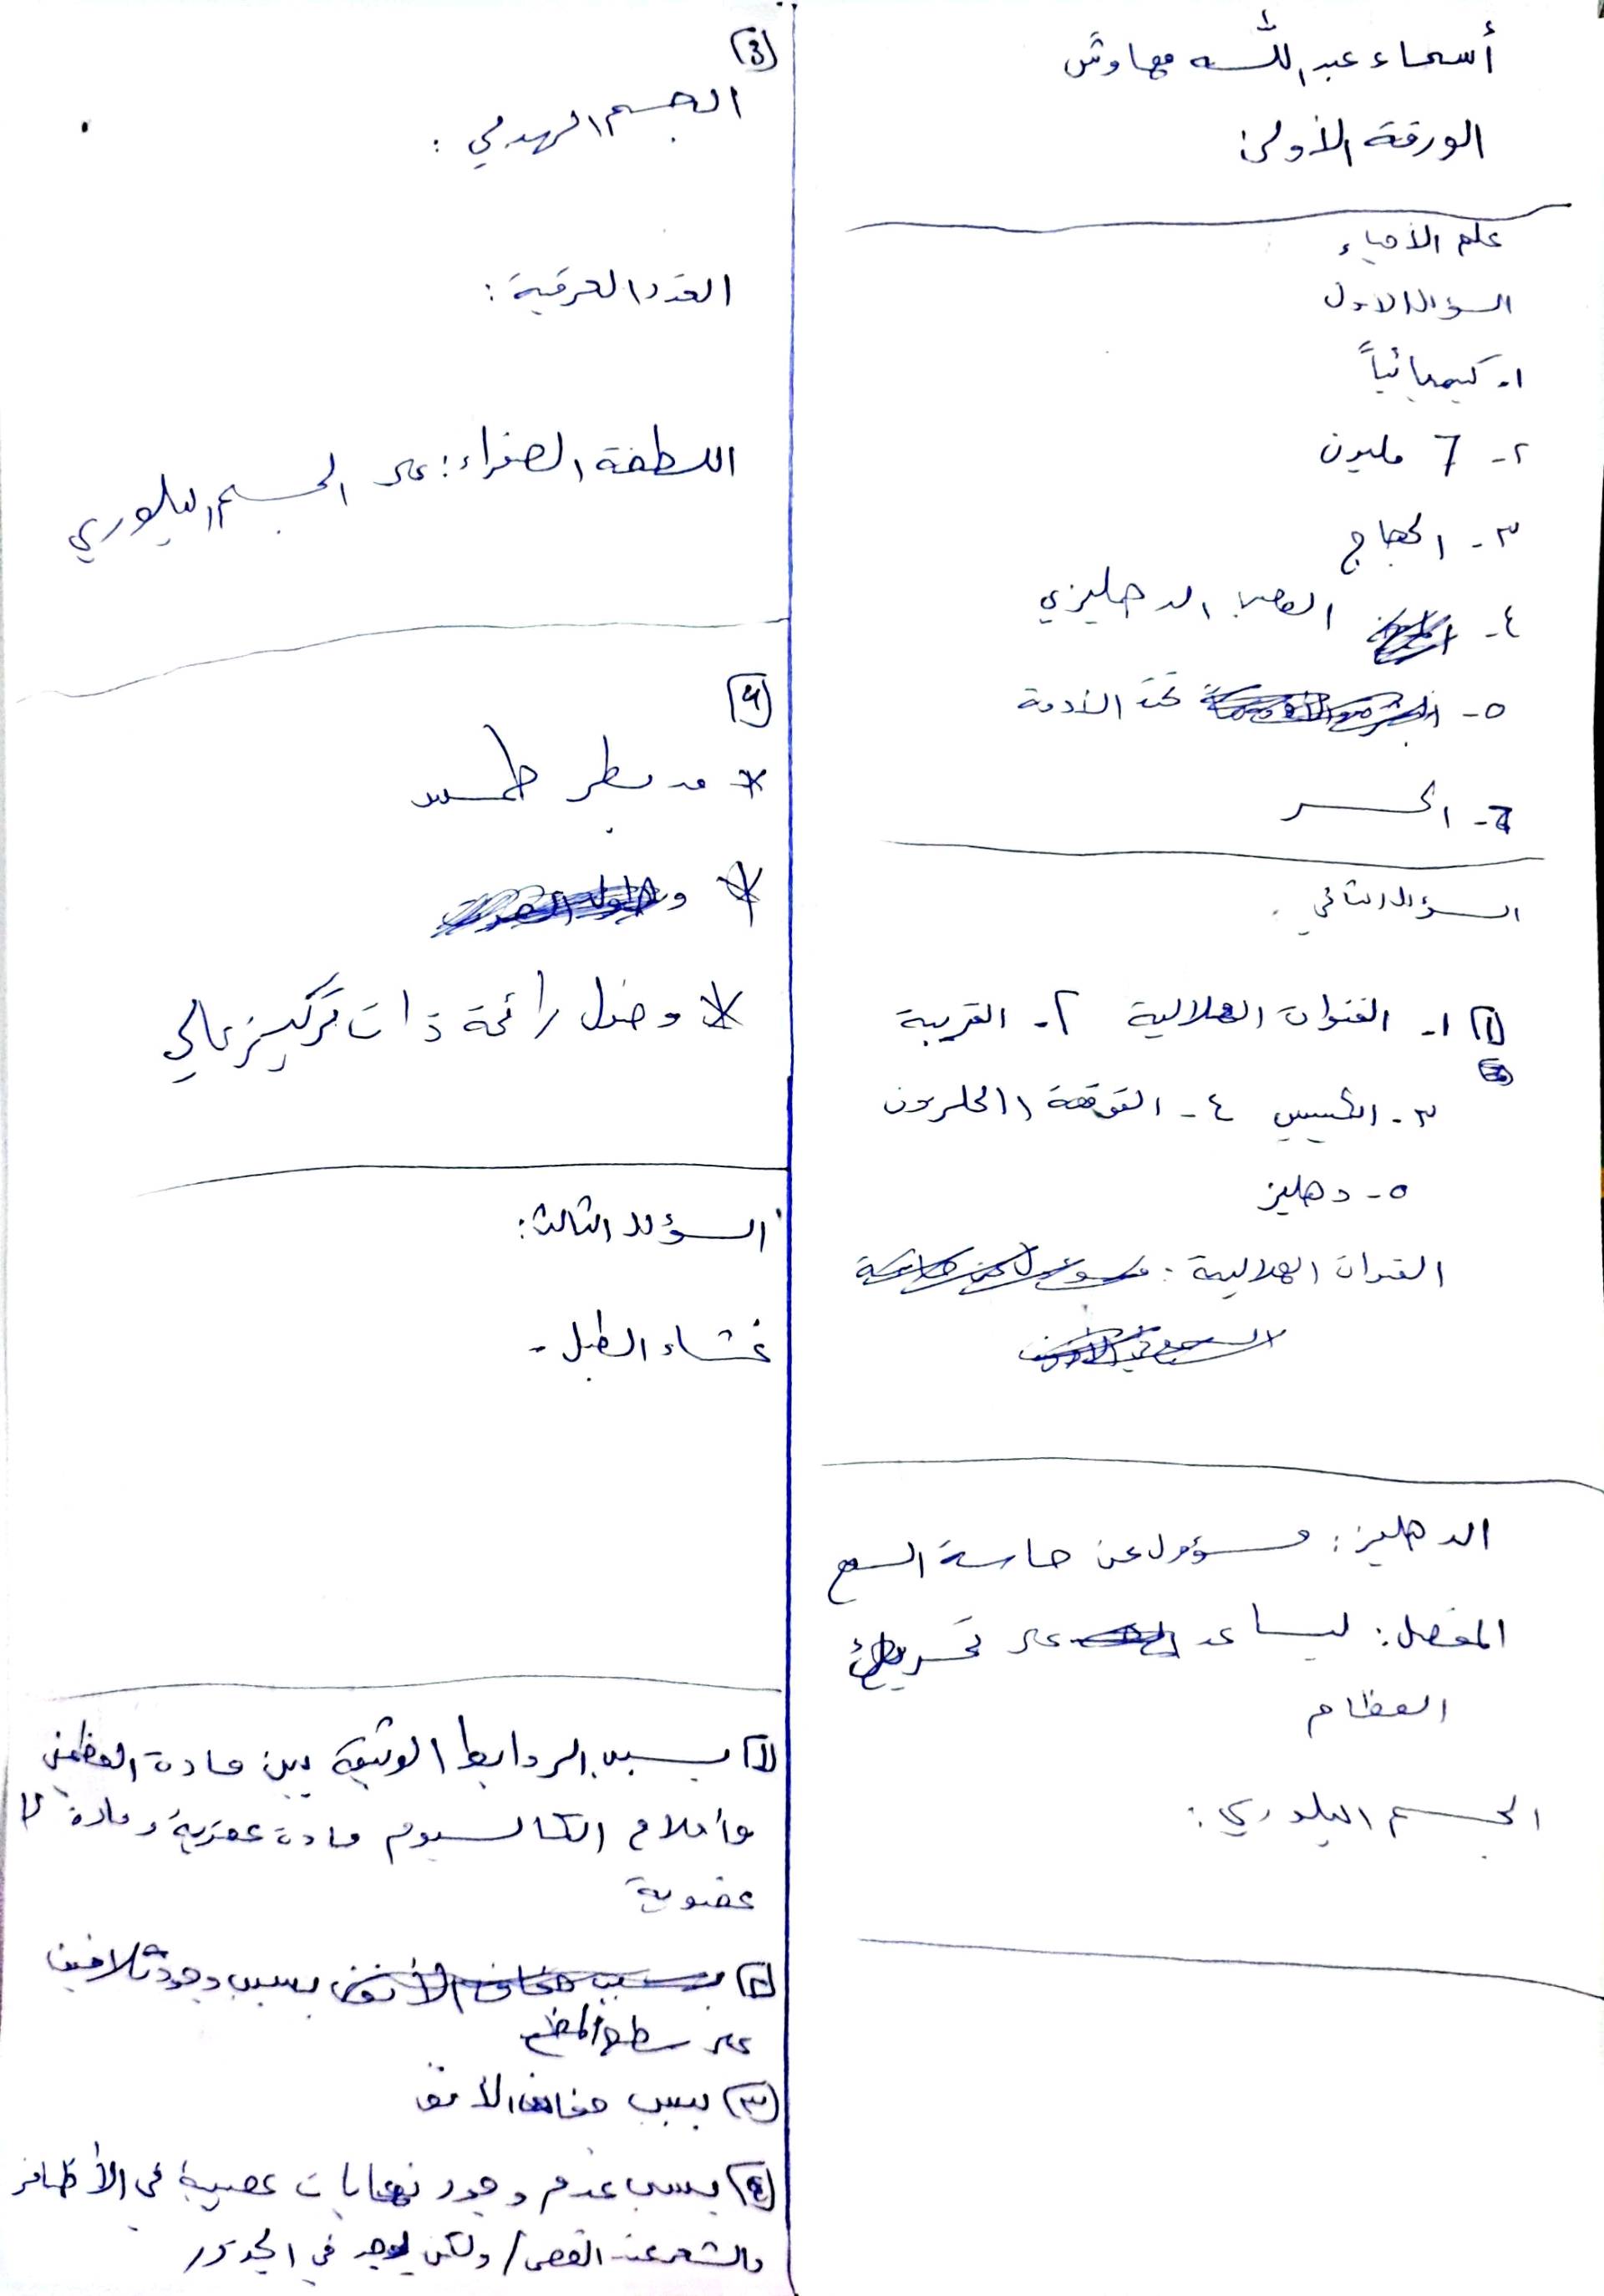 أسماء عبد الله مهاوش
الورقة الأولى:
علم الأحياء
السؤال الاول
١- كيميائياً
٢- 7 مليون
٣- الحجاج
٤- العصب الدهليزي
٥- تحت الأدمة
٦- الحسر
السؤال الثاني
١) ١- القنوات الهلالية ٢- القريبة
٣- الكييس ٤- القوقعة / الحلزون
٥- دهليز
القنوات الهلالية :
الدهليز: مسؤول عن حاسة السمع
المفصل: ليساعد على تحريك
العظام
الجسم البلوري:
(3)
الجسم الهدبي :
الغدد العرقية :
اللطخة الصفراء: على الجسم البلوري
(4)
*
* و
* وصول رائحة ذات تركيز عالي
السؤال الثالث:
غشاء الطبل -
١) بسبب الروابط الوثيقة بين مادة العظمين
وأملاح الكالسيوم مادة عضوية ومادة لا
عضوية
٢) بسبب وجود تلافيف
على سطح المخ
٣) بسبب مخاط الأنف
٤) بسبب عدم وجود نهايات عصبية في الأظافر
والشعر عند القص / ولكن يوجد في الجذور